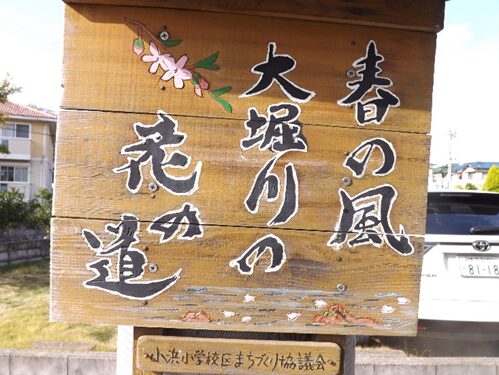 春の風
大堀川の
花の道
～小浜小学校区まちづくり協議会～
81-18